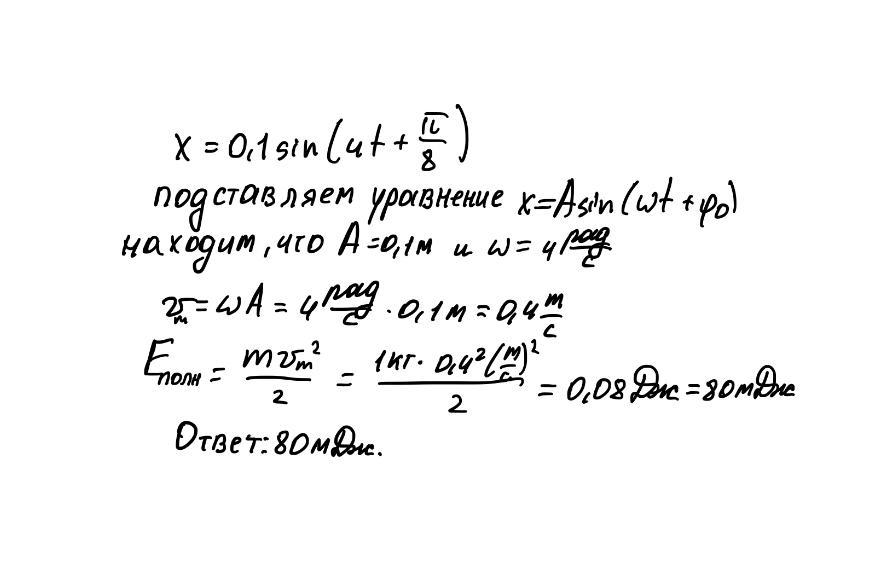 x = 0,1 sin(4t + π/8)
подставляем уравнение x=A sin(ωt + φ₀)
находим, что A=0,1м и ω = 4 рад/с
υₘ = ωA = 4 рад/с · 0,1м = 0,4 м/с
Eполн = mυₘ²/2 = 1кг · 0,4² (м/с)²/2 = 0,08 Дж = 80мДж
Ответ: 80мДж.